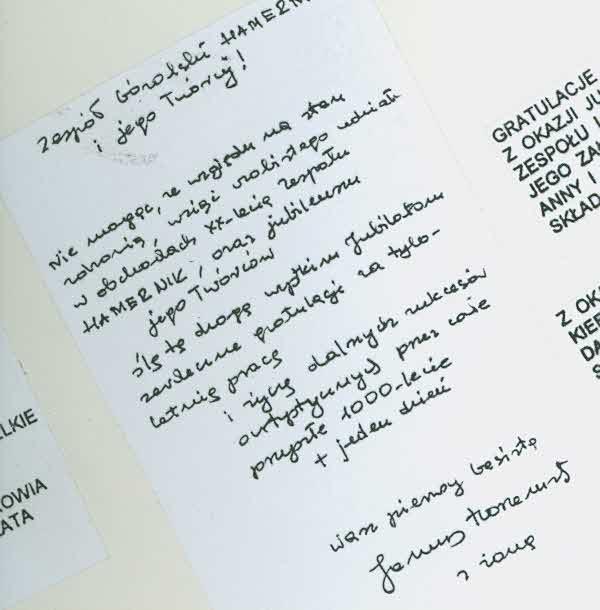 Zespół Góralski HAMERN
i jego Twórcy!
Nie mogąc, ze względu na stan
zdrowia, wziąć osobistego udziału
w obchodach XX-lecia zespołu
HAMERNIK, oraz jubileuszu
jego Twórców
ślę tą drogą wszystkim Jubilatom
serdeczne gratulacje za tylo-
letnią pracę
i życzę dalszych sukcesów
artystycznych przez całe
przyszłe 1000-lecie
+ jeden dzień
Wasz pierwszy basista
Janusz
z żoną
GRATULACJE
Z OKAZJI JU
ZESPOŁU I
JEGO ZA
ANNY I
SKŁAD
Z OK
KIE
DA
S
LKIE
OWIA
ATA